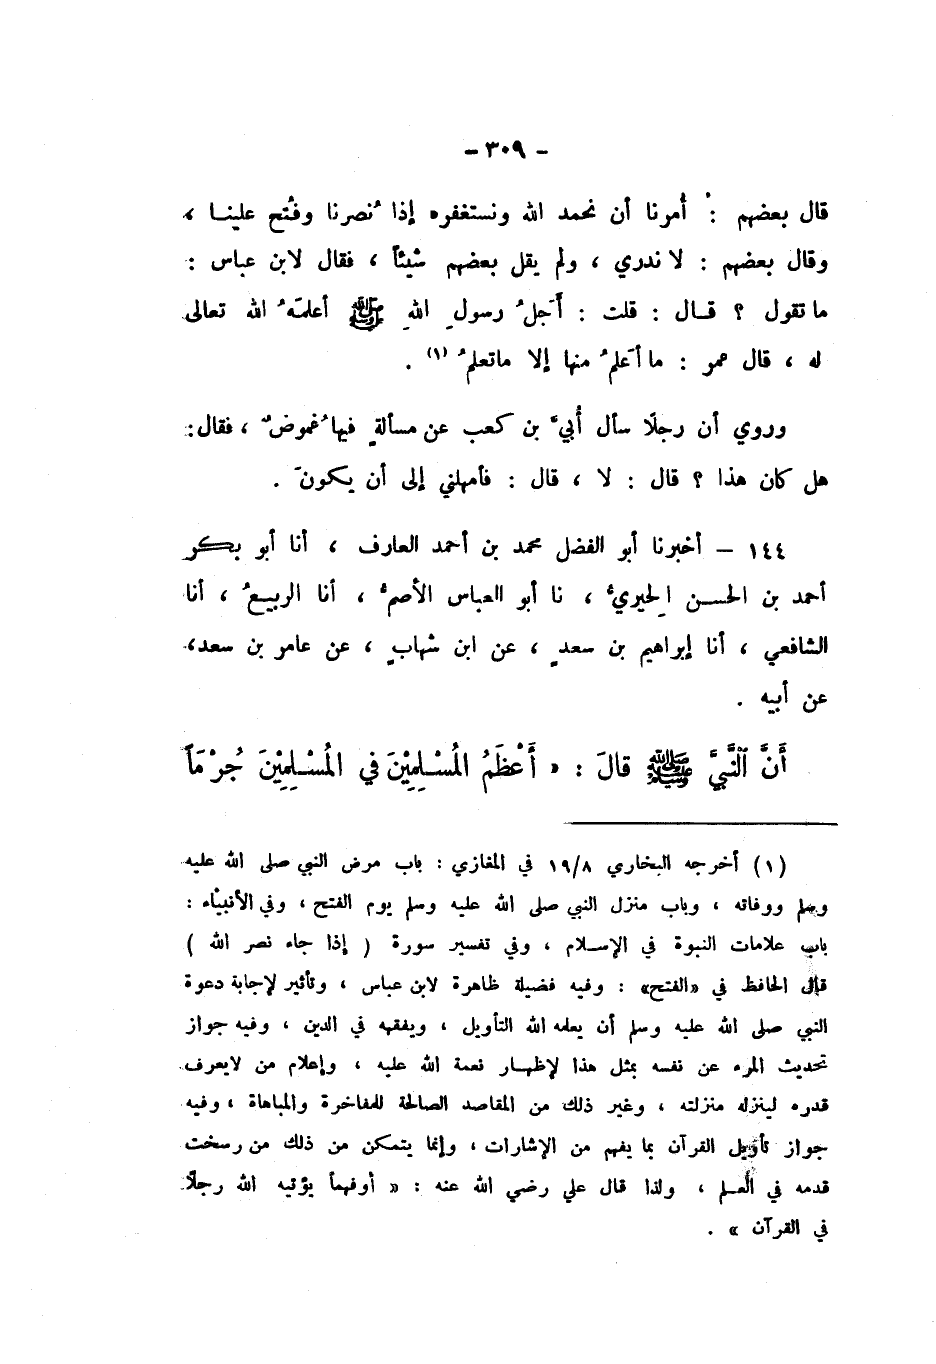 - ٣٠٩ -
قال بعضهم : أُمرنا أن نحمد الله ونستغفره إذا نُصرنا وفُتح علينا ،
وقال بعضهم : لا ندري ، ولم يقل بعضهم شيئاً ، فقال لابن عباس :
ما تقول ؟ قال : قلت : أَجلُ رسولِ اللهِ ﷺ أعلمَهُ الله تعالى
له ، قال عمر : ما أَعلمُ منها إلا ماتعلمُ (١) .
وروي أن رجلًا سأل أُبيَّ بن كعب عن مسألةٍ فيها غُموضٌ ، فقال :
هل كان هذا ؟ قال : لا ، قال : فأمهلني إلى أن يكونَ .
١٤٤ – أخبرنا أبو الفضل محمد بن أحمد العارف ، أنا أبو بكر
أحمد بن الحسن الحِيريُّ ، نا أبو العباس الأصمُّ ، أنا الربيعُ ، أنا
الشافعي ، أنا إبراهيم بن سعدٍ ، عن ابن شهابٍ ، عن عامر بن سعد ،
عن أبيه .
أَنَّ النَّبِيَّ ﷺ قالَ : « أَعْظَمُ الْمُسْلِمِيْنَ فِي الْمُسْلِمِيْنَ جُرْمَاً
(١) أخرجه البخاري ١٩/٨ في المغازي : باب مرض النبي صلى الله عليه
وسلم ووفاته ، وباب منزل النبي صلى الله عليه وسلم يوم الفتح ، وفي الأنبياء :
باب علامات النبوة في الإسلام ، وفي تفسير سورة ( إذا جاء نصر الله )
قال الحافظ في «الفتح» : وفيه فضيلة ظاهرة لابن عباس ، وتأثير لإجابة دعوة
النبي صلى الله عليه وسلم أن يعلمه الله التأويل ، ويفقهه في الدين ، وفيه جواز
تحديث المرء عن نفسه بمثل هذا لإظهار نعمة الله عليه ، وإعلام من لايعرف
قدره لينزله منزلته ، وغير ذلك من المقاصد الصالحة للمفاخرة والمباهاة ، وفيه
جواز تأويل القرآن بما يفهم من الإشارات ، وإنما يتمكن من ذلك من رسخت
قدمه في العلم ، ولذا قال علي رضي الله عنه : « أوفهماً يؤتيه الله رجلًا
في القرآن » .